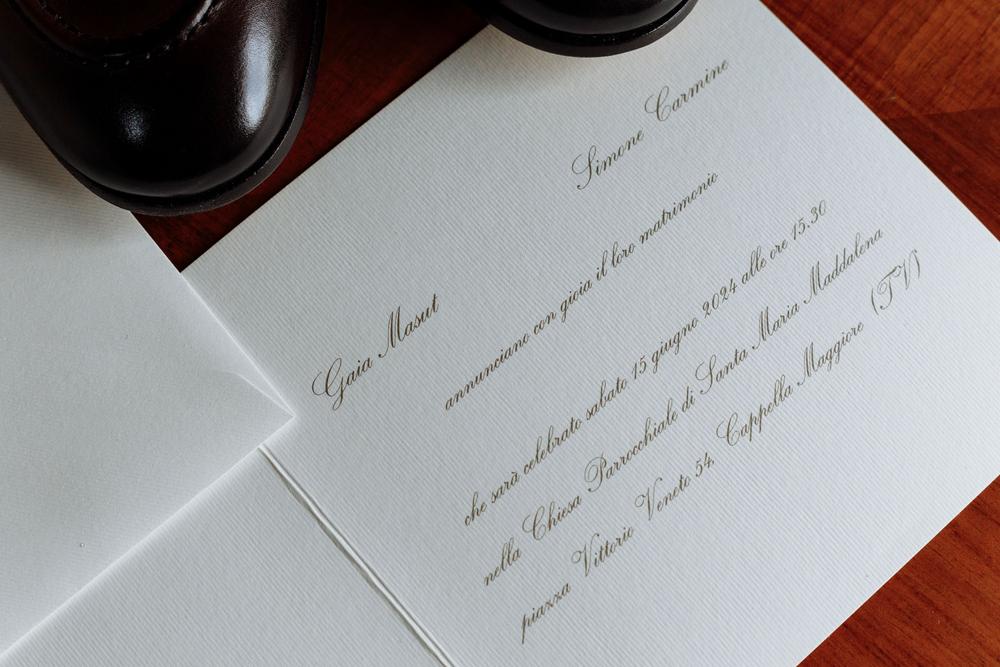 Gaia Masut
Simone Carmine
annunciano con gioia il loro matrimonio
che sarà celebrato sabato 15 giugno 2024 alle ore 15.30
nella Chiesa Parrocchiale di Santa Maria Maddalena
piazza Vittorio Veneto 54, Cappella Maggiore (TV)